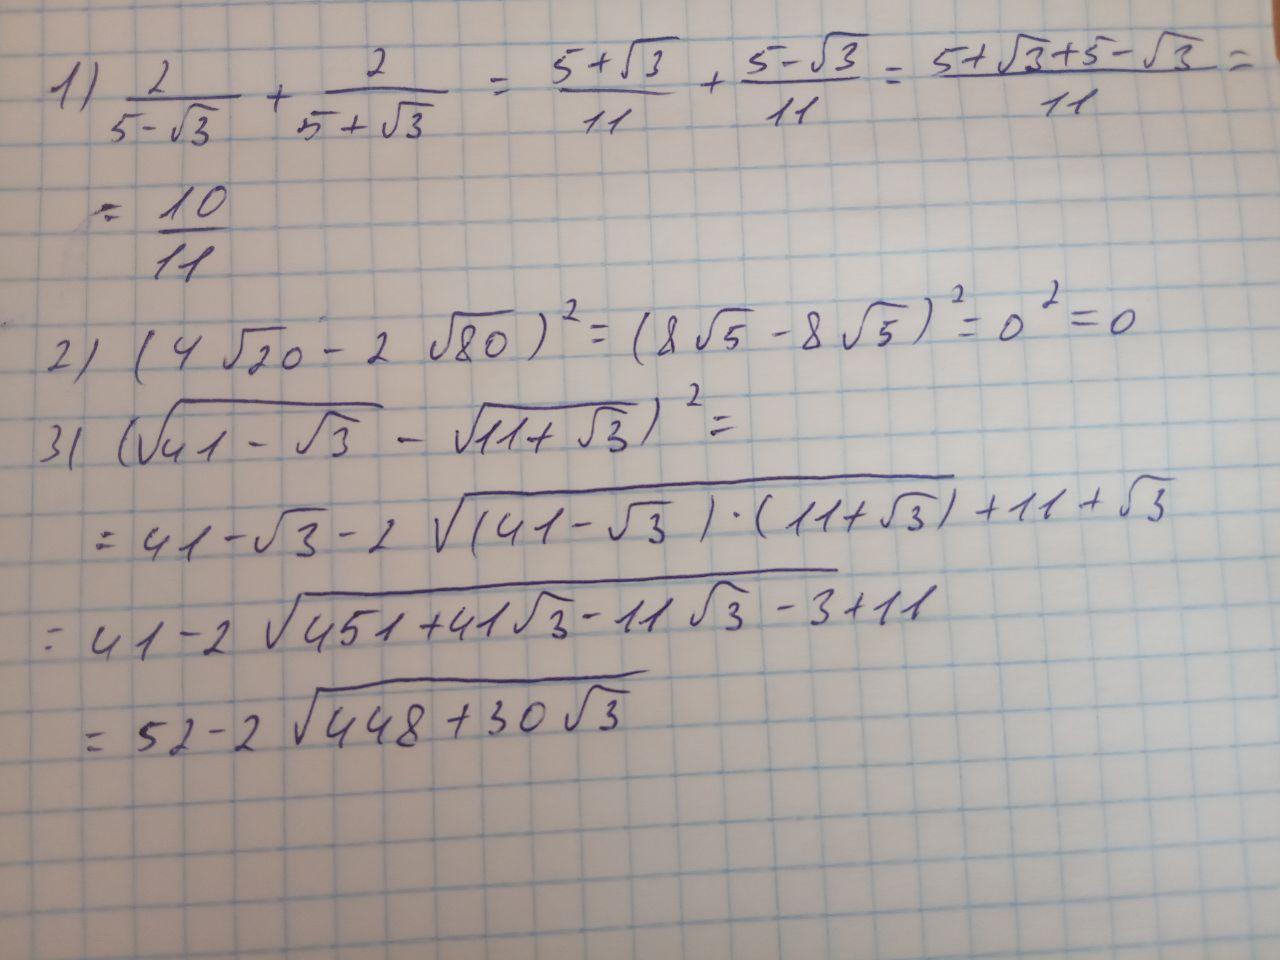 1) 2/(5-√3) + 2/(5+√3) = (5+√3)/11 + (5-√3)/11 = (5+√3+5-√3)/11 =
= 10/11
2) (4√20 - 2√80)² = (8√5 - 8√5)² = 0² = 0
3) (√(41-√3) - √(11+√3))² =
= 41-√3-2√((41-√3)·(11+√3)) + 11 + √3
= 41-2√(451+41√3-11√3-3)+11
= 52-2√(448+30√3)